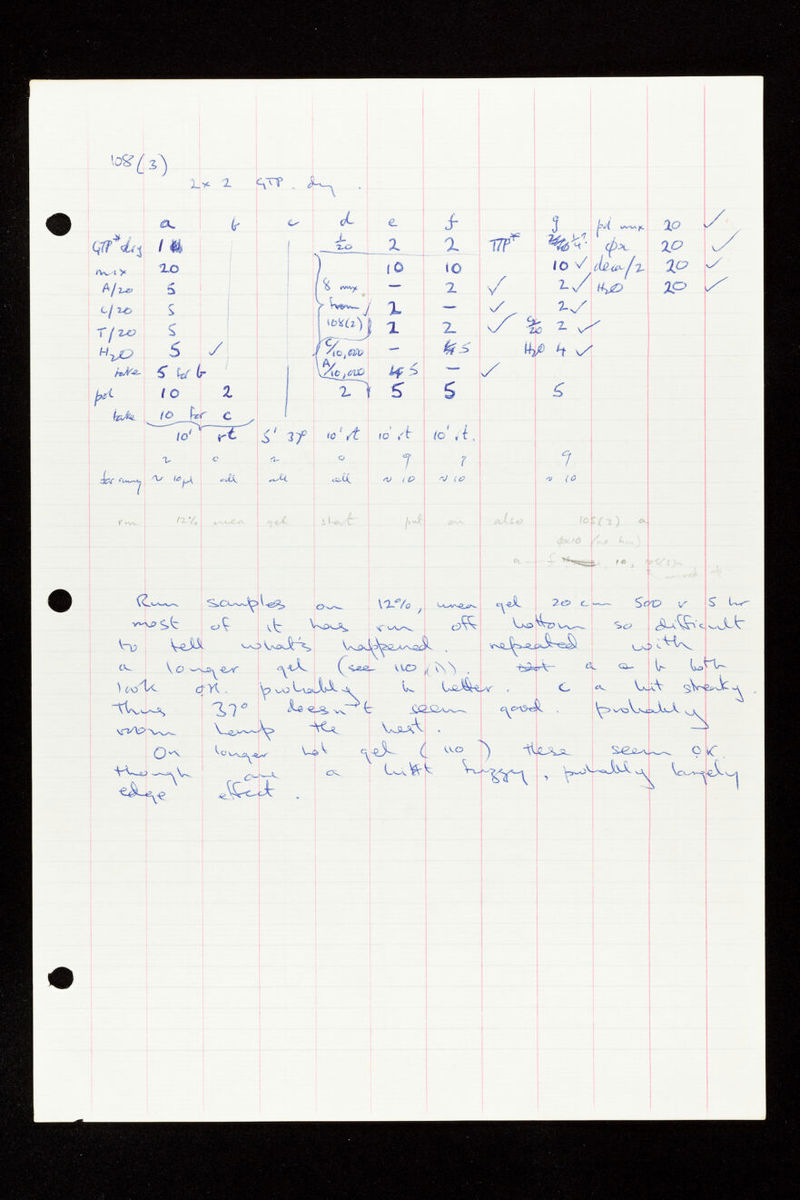 108(3)
2 x 2 GTP. dry.
a b c d e f g pol mix 20 ✓
GTP* dry 1 1/20 2 2 TTP* φx 20 ✓
mix 20 10 10 10 ✓ deca/2 20 ✓
A/20 5 8 mix - 2 ✓ 2 ✓ H2O 20 ✓
C/20 5 from 2 - ✓ 2 ✓
T/20 5 108(2) 2 2 ✓ C/20 2 ✓
H2O 5 ✓ C/10,000 - 5 H2O 4 ✓
take 5 for b A/10,000 5 - ✓
pol 10 2 2 5 5 5
take 10 for c
10' rt 5' 37° 10' rt 10' rt 10' rt.
2 0 2 0 9 ? 9
for run ~ 10µl all all all ~ 10 ~ 10 ~ 10
run 12% urea gel start put on also 105(3) a
φx10 (no)
a - f 10,
Run samples on 12%, urea gel 20 cm 500 v 5 hr
most of it has run off bottom so difficult
to tell what's happened. repeated with
a longer gel (see 110(1)). a & b both
look OK. probably b better. c a bit streaky.
Thus 37° doesn't seem good. probably
room temp the best.
On longer hot gel (110) these seem OK
though are a bit fuzzy, probably largely
edge effect.